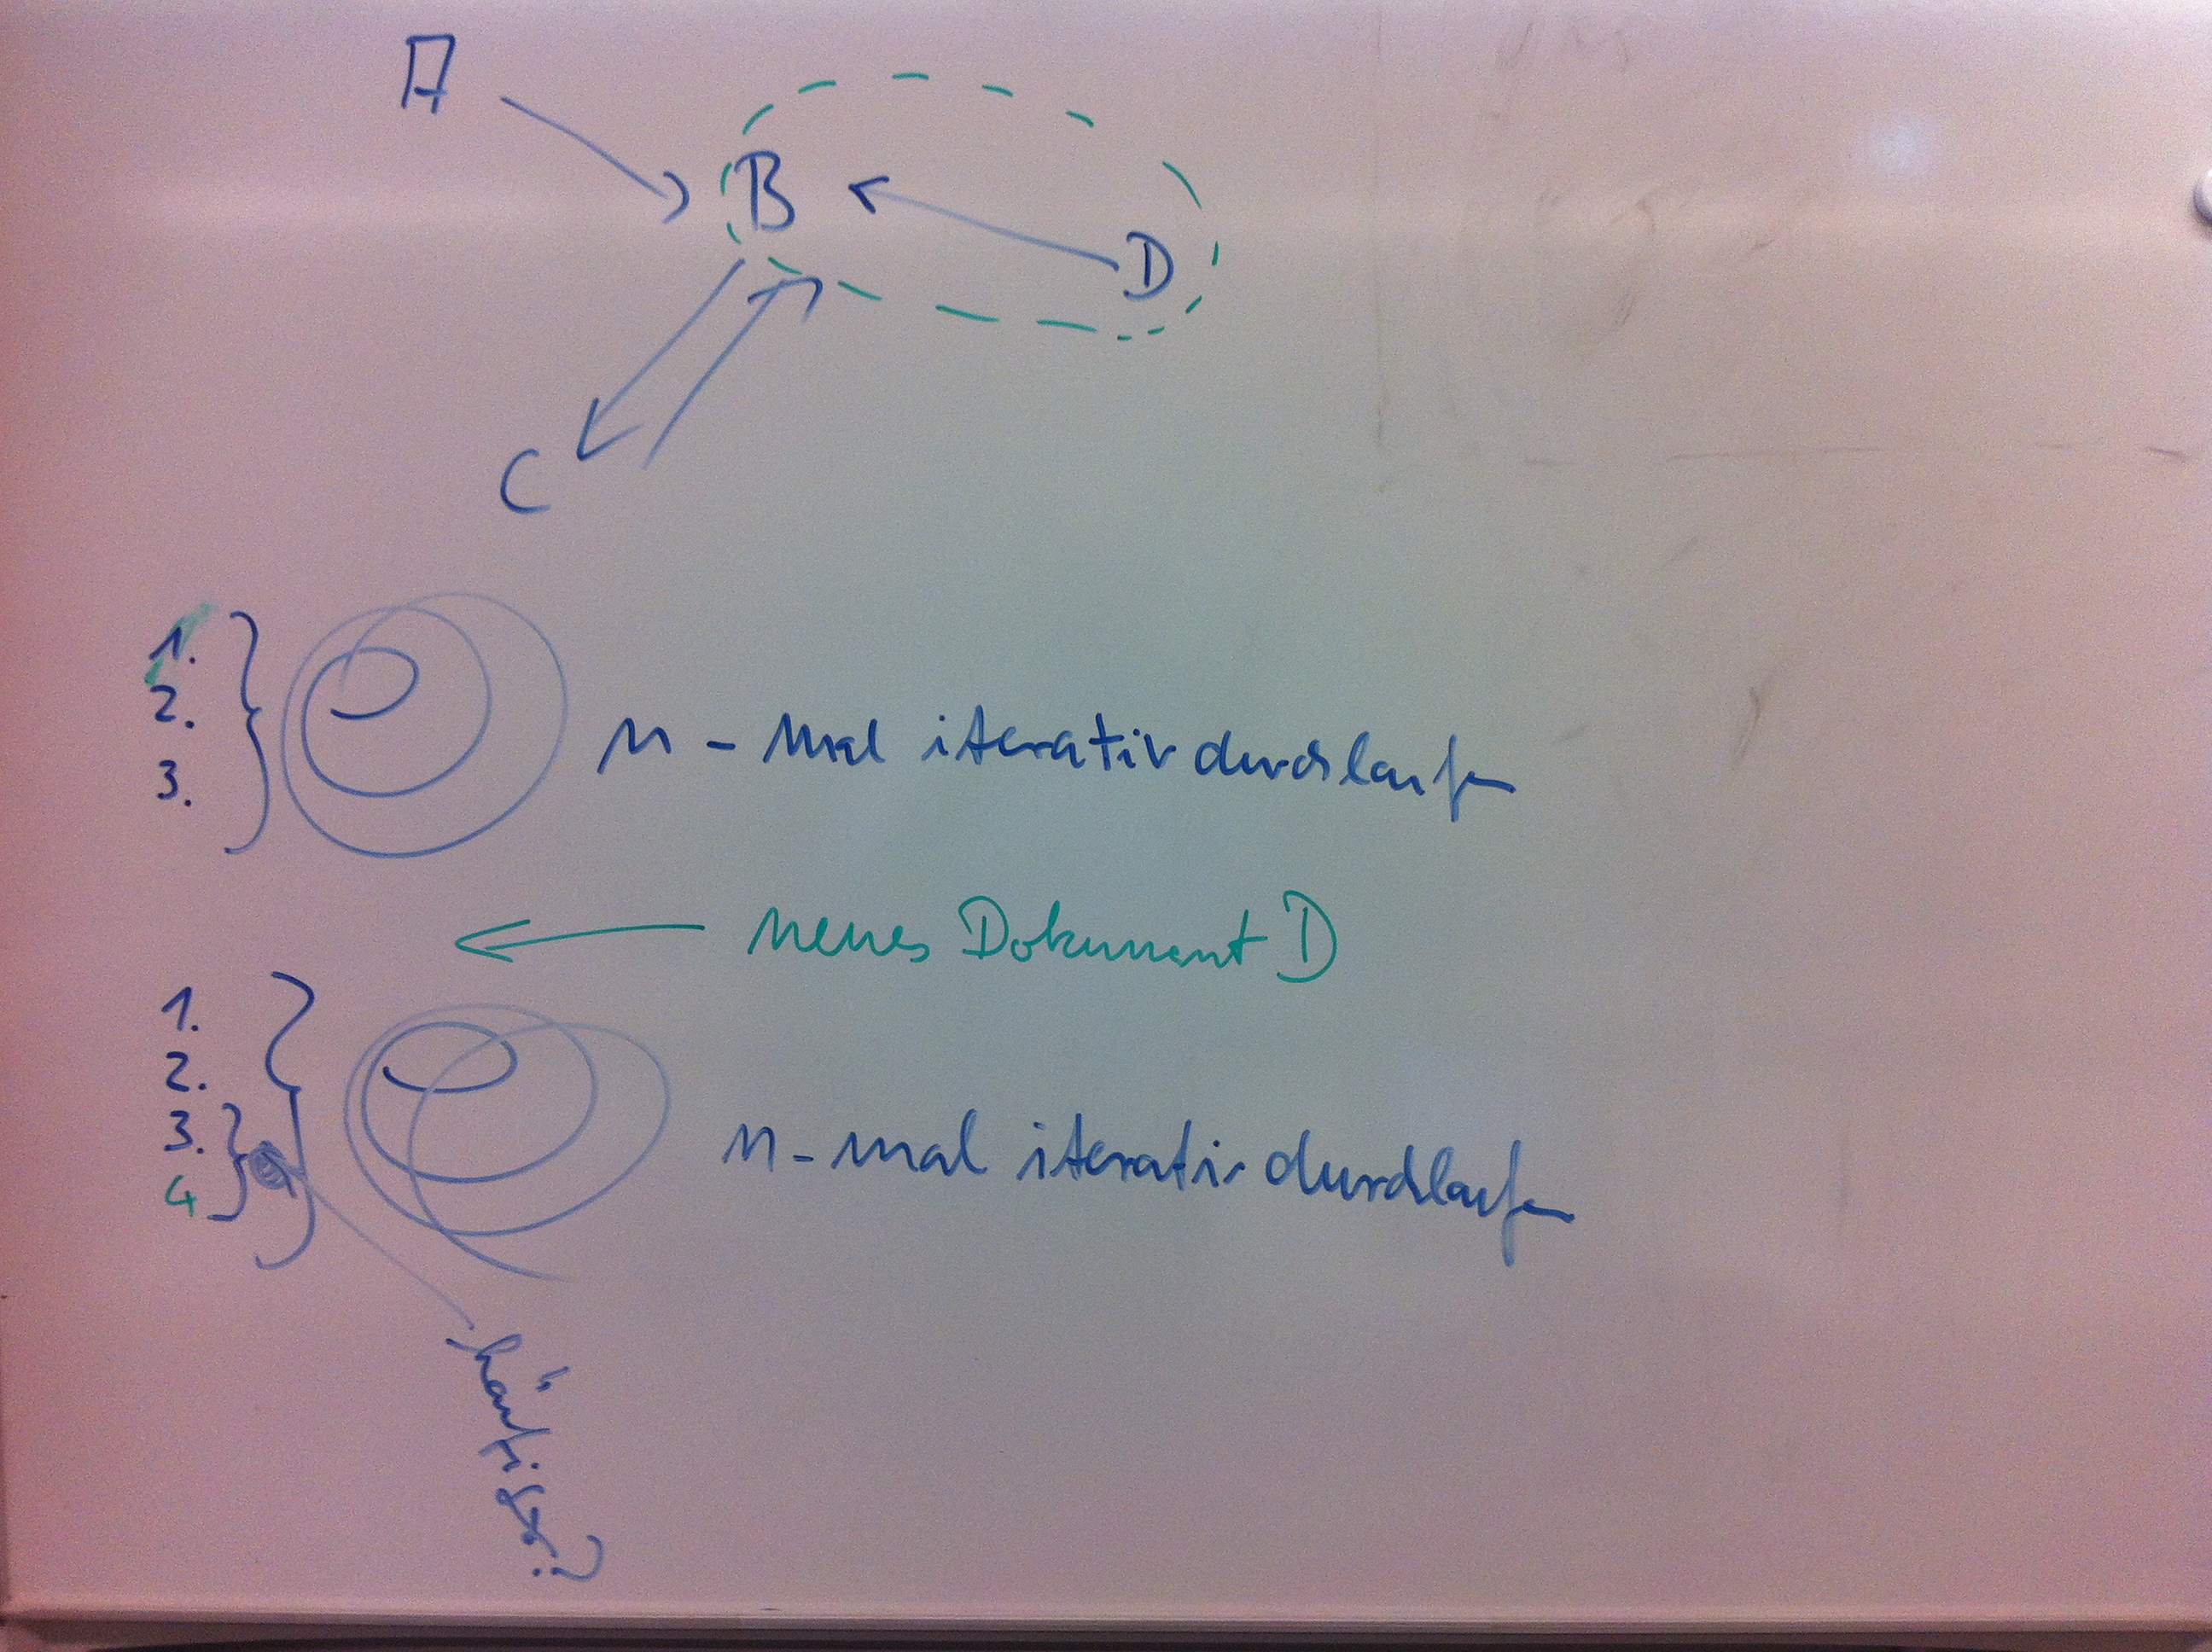 A
B
D
C
1.
2.
3.
n - mal iterativ durchlaufen
neues Dokument D
1.
2.
3.
4
n - mal iterativ durchlaufen
häufiger?